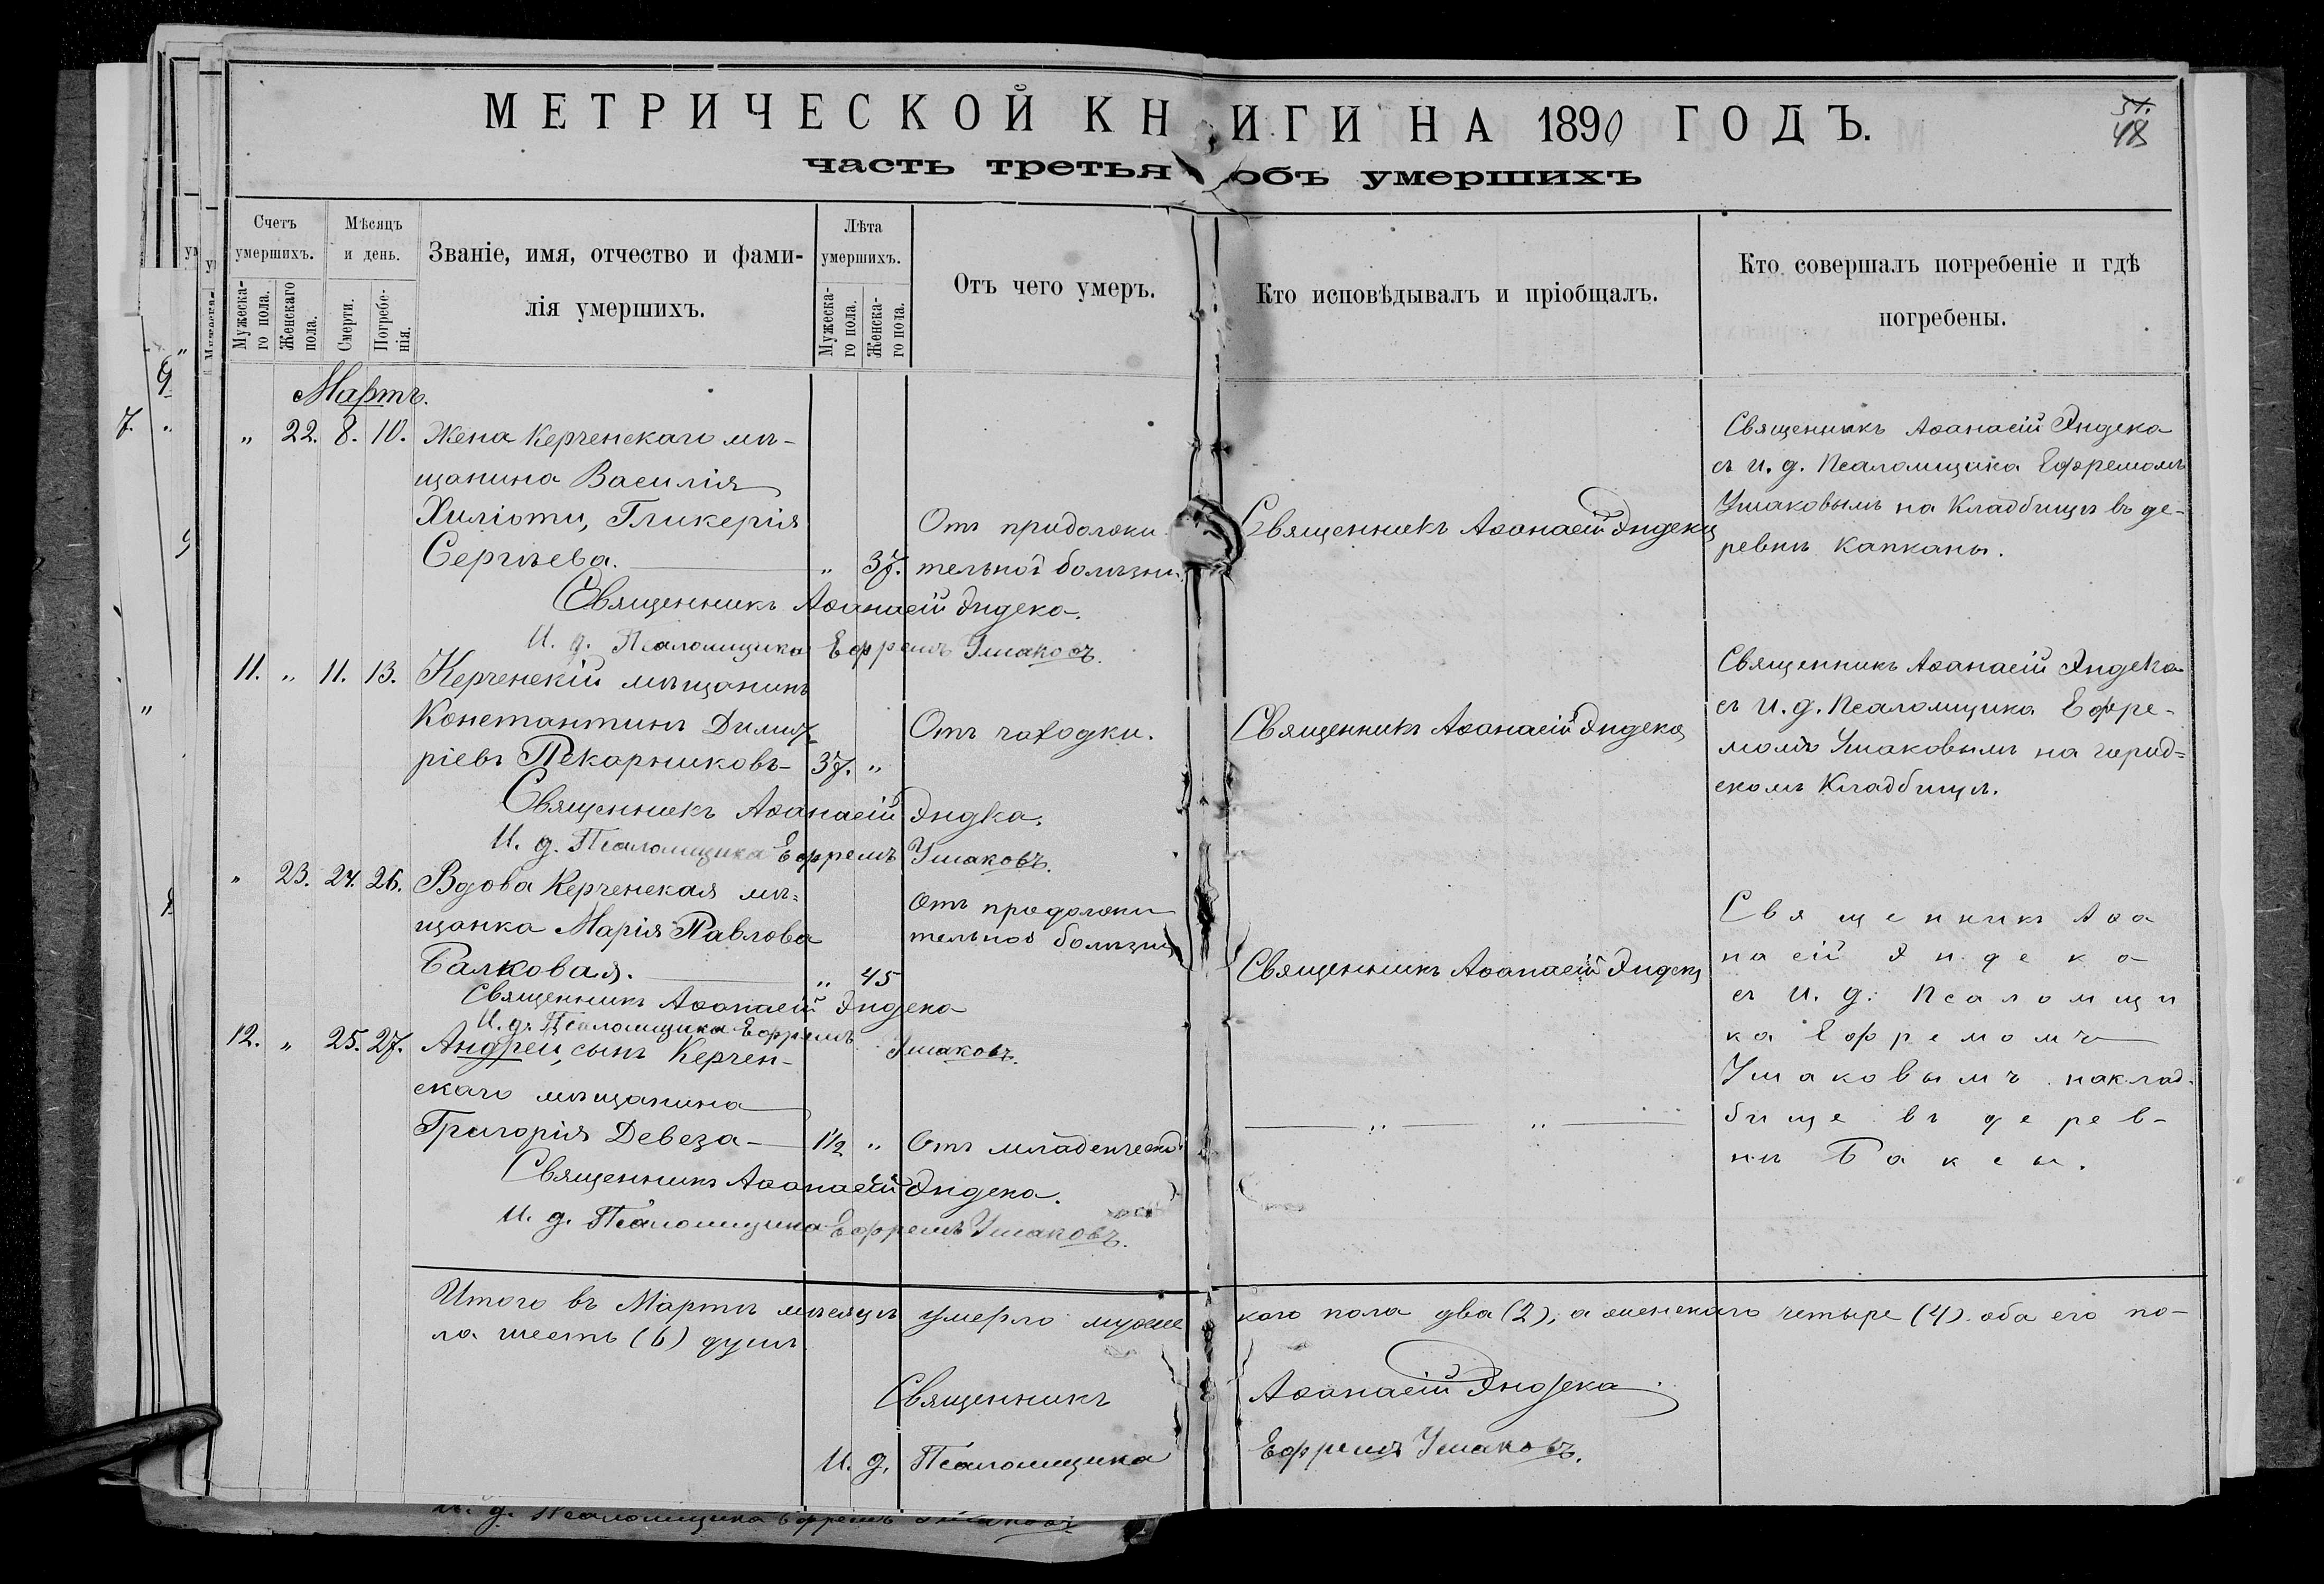 МЕТРИЧЕСКОЙ КНИГИ НА 1890 ГОДЪ.
31.
48
часть третья объ умершихъ
Счетъ умершихъ.
Мѣсяцъ и день.
Званіе, имя, отчество и фами-
лія умершихъ.
Лѣта умершихъ.
Отъ чего умеръ.
Кто исповѣдывалъ и пріобщалъ.
Кто совершалъ погребеніе и гдѣ
погребены.
Мужеска-
го пола.
Женскаго
пола.
Смерти.
Погребе-
нія.
Мужеска-
го пола.
Женска-
го пола.
Мартъ.
" 22. 8. 10. Жена Керченскаго мѣ-
щанина Василія
Хиліоти, Гликерія
Сергѣева. " 37.
Отъ продолжи
тельной болѣзни.
Священникъ Аѳанасій Эндека
Священникъ Аѳанасій Эндека
съ И. д. Псаломщика Ефремомъ
Ушаковымъ на Кладбищѣ въ де-
ревнѣ Капканы.
Священникъ Аѳанасій Эндека.
И. д. Псаломщика Ефремъ Ушаковъ.
11. " 11. 13. Керченскій мѣщанинъ
Константинъ Димит
ріевъ Пекарниковъ- 37. "
Отъ чаходки.
Священникъ Аѳанасій Эндека
Священникъ Аѳанасій Эндека
съ И. д. Псаломщика Ефре-
момъ Ушаковымъ на город=
скомъ Кладбищѣ.
Священникъ Аѳанасій Эндка.
И. д. Псаломщика Ефремъ Ушаковъ.
" 23. 24. 26. Вдова Керченская мѣ=
щанка Марія Павлова
Балковая. " 45
Отъ продолжи
тельной болѣзни
Священникъ Аѳанасій Эндека
Священникъ Аѳа
насій Эндека
съ И. д. Псаломщи
ка Ефремомъ
Ушаковымъ наклад-
бище въ дерев-
нѣ Баксы.
Священникъ Аѳанасій Эндека
И. д. Псаломщика Ефремъ Ушаковъ.
12. " 25. 27. Андрей, сынъ Керчен-
скаго мѣщанина
Григорія Девеза- 1½ " Отъ младенческой
— " — " —
Священникъ Аѳанасій Эндека.
И. д. Псаломщика Ефремъ Ушаковъ.
Итого въ Мартѣ мѣсяцѣ умерло муже кого пола два (2), а женскаго четыре (4). оба его по-
ла шесть (6) душъ.
Священникъ Аѳанасій Эндека
И. д. Псаломщика Ефремъ Ушаковъ.
И. д. Псаломщика Ефремъ Ушаковъ